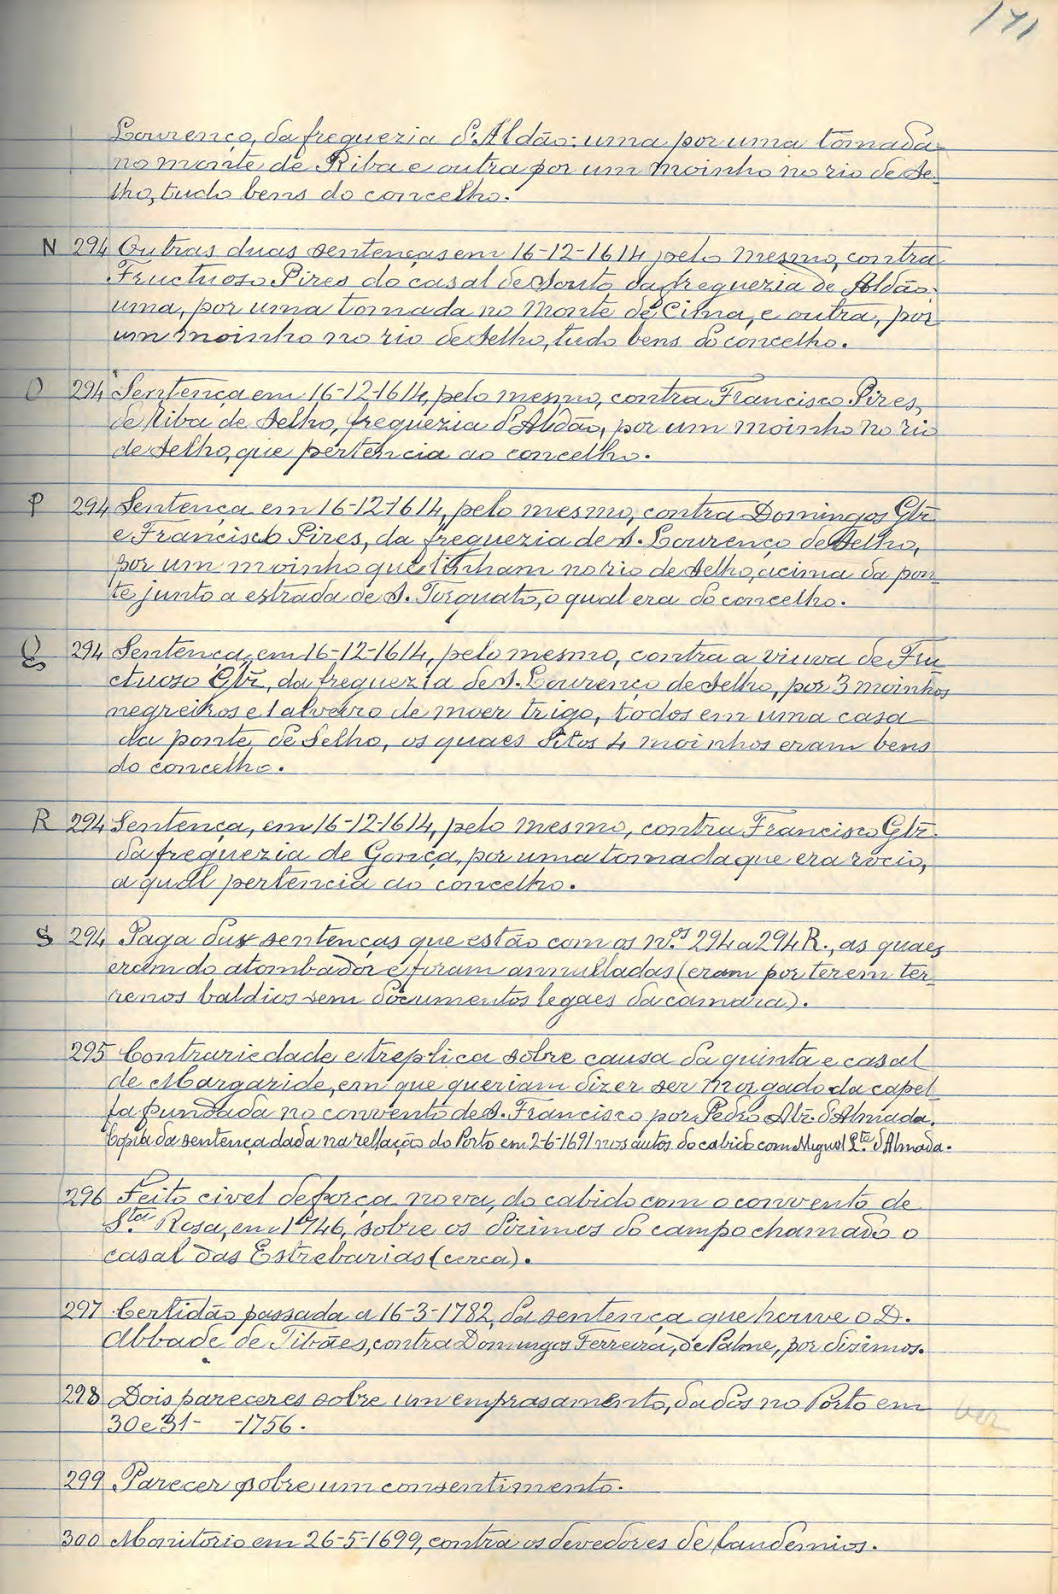 171
Lourenço, da freguezia d'Aldão: uma por uma tomada
no monte de Riba e outra por um moinho no rio de Se-
lho, tudo bens do concelho.
N 294 Outras duas sentenças em 16-12-1614 pelo mesmo, contra
Fructuoso Pires do casal de Souto da freguezia de Aldão:
uma, por uma tomada no Monte de Cima, e outra, por
um moinho no rio de Selho, tudo bens do concelho.
O 294 Sentença em 16-12-1614, pelo mesmo, contra Francisco Pires,
de Riba de Selho, freguezia d'Aldão, por um moinho no rio
de Selho, que pertencia ao concelho.
P 294 Sentença em 16-12-1614, pelo mesmo, contra Domingos Glz
e Francisco Pires, da freguezia de S. Lourenço de Selho,
por um moinho que tinham no rio de Selho, acima da pon-
te junto a estrada de S. Torquato, o qual era do concelho.
Q 294 Sentença, em 16-12-1614, pelo mesmo, contra a viuva de Fru
ctuoso Glz, da freguezia de S. Lourenço de Selho, por 3 moinhos
negreiros e 1 alveiro de moer trigo, todos em uma casa
da ponte de Selho, os quaes ditos 4 moinhos eram bens
do concelho.
R 294 Sentença, em 16-12-1614, pelo mesmo, contra Francisco Glz.
da freguezia de Gonça, por uma tomada que era rocio,
a qual pertencia ao concelho.
S 294 Paga das sentenças que estão com os n.os 294 a 294 R., as quaes
eram do atombador e foram annulladas (eram por terem ter-
renos baldios sem documentos legaes da camara).
295 Contrariedade e treplica sobre causa da quinta e casal
de Margaride, em que queriam dizer ser morgado da capel
la fundada no convento de S. Francisco por Pedro Alz. d'Almada.
Copia da sentença dada na rellação do Porto em 2-6-1691 nos autos do cabido com Miguel P.to d'Almada.
296 Feito civel de força nova, do cabido com o convento de
S.ta Rosa, em 1746, sobre os dizimos do campo chamado o
casal das Estrebarias (cerca).
297 Certidão passada a 16-3-1782, da sentença que houve o D.
Abbade de Tibães, contra Domingos Ferreira, de Palme, por dizimos.
298 Dois pareceres sobre um emprasamento, dados no Porto em
30 e 31- -1756.
ver
299 Parecer sobre um consentimento.
300 Monitorio em 26-5-1699, contra os devedores de laudemios.